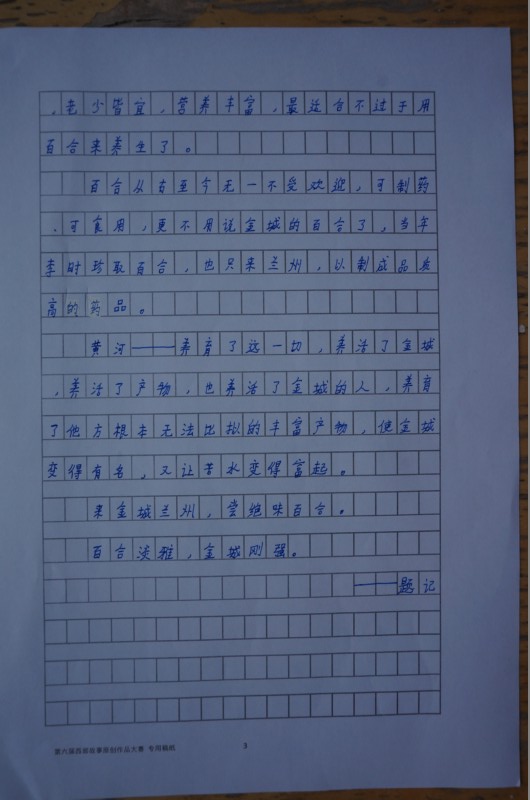 ，老少皆宜，营养丰富，最适合不过于用
百合来养生了。
百合从古至今无一不受欢迎，可制药
、可食用，更不用说金城的百合了，当年
李时珍取百合，也只来兰州，以制成品质
高的药品。
黄河——养育了这一切，养活了金城
，养活了产物，也养活了金城的人，养育
了他方根本无法比拟的丰富产物，使金城
变得有名，又让苦水变得富起。
来金城兰州，尝绝味百合。
百合淡雅，金城刚强。
——题记
第六届 故事原创作品大赛 专用稿纸
3